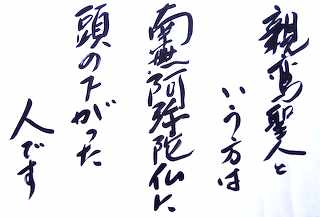 親鸞聖人と
いう方は
南無阿弥陀仏に
頭の下がった
人です